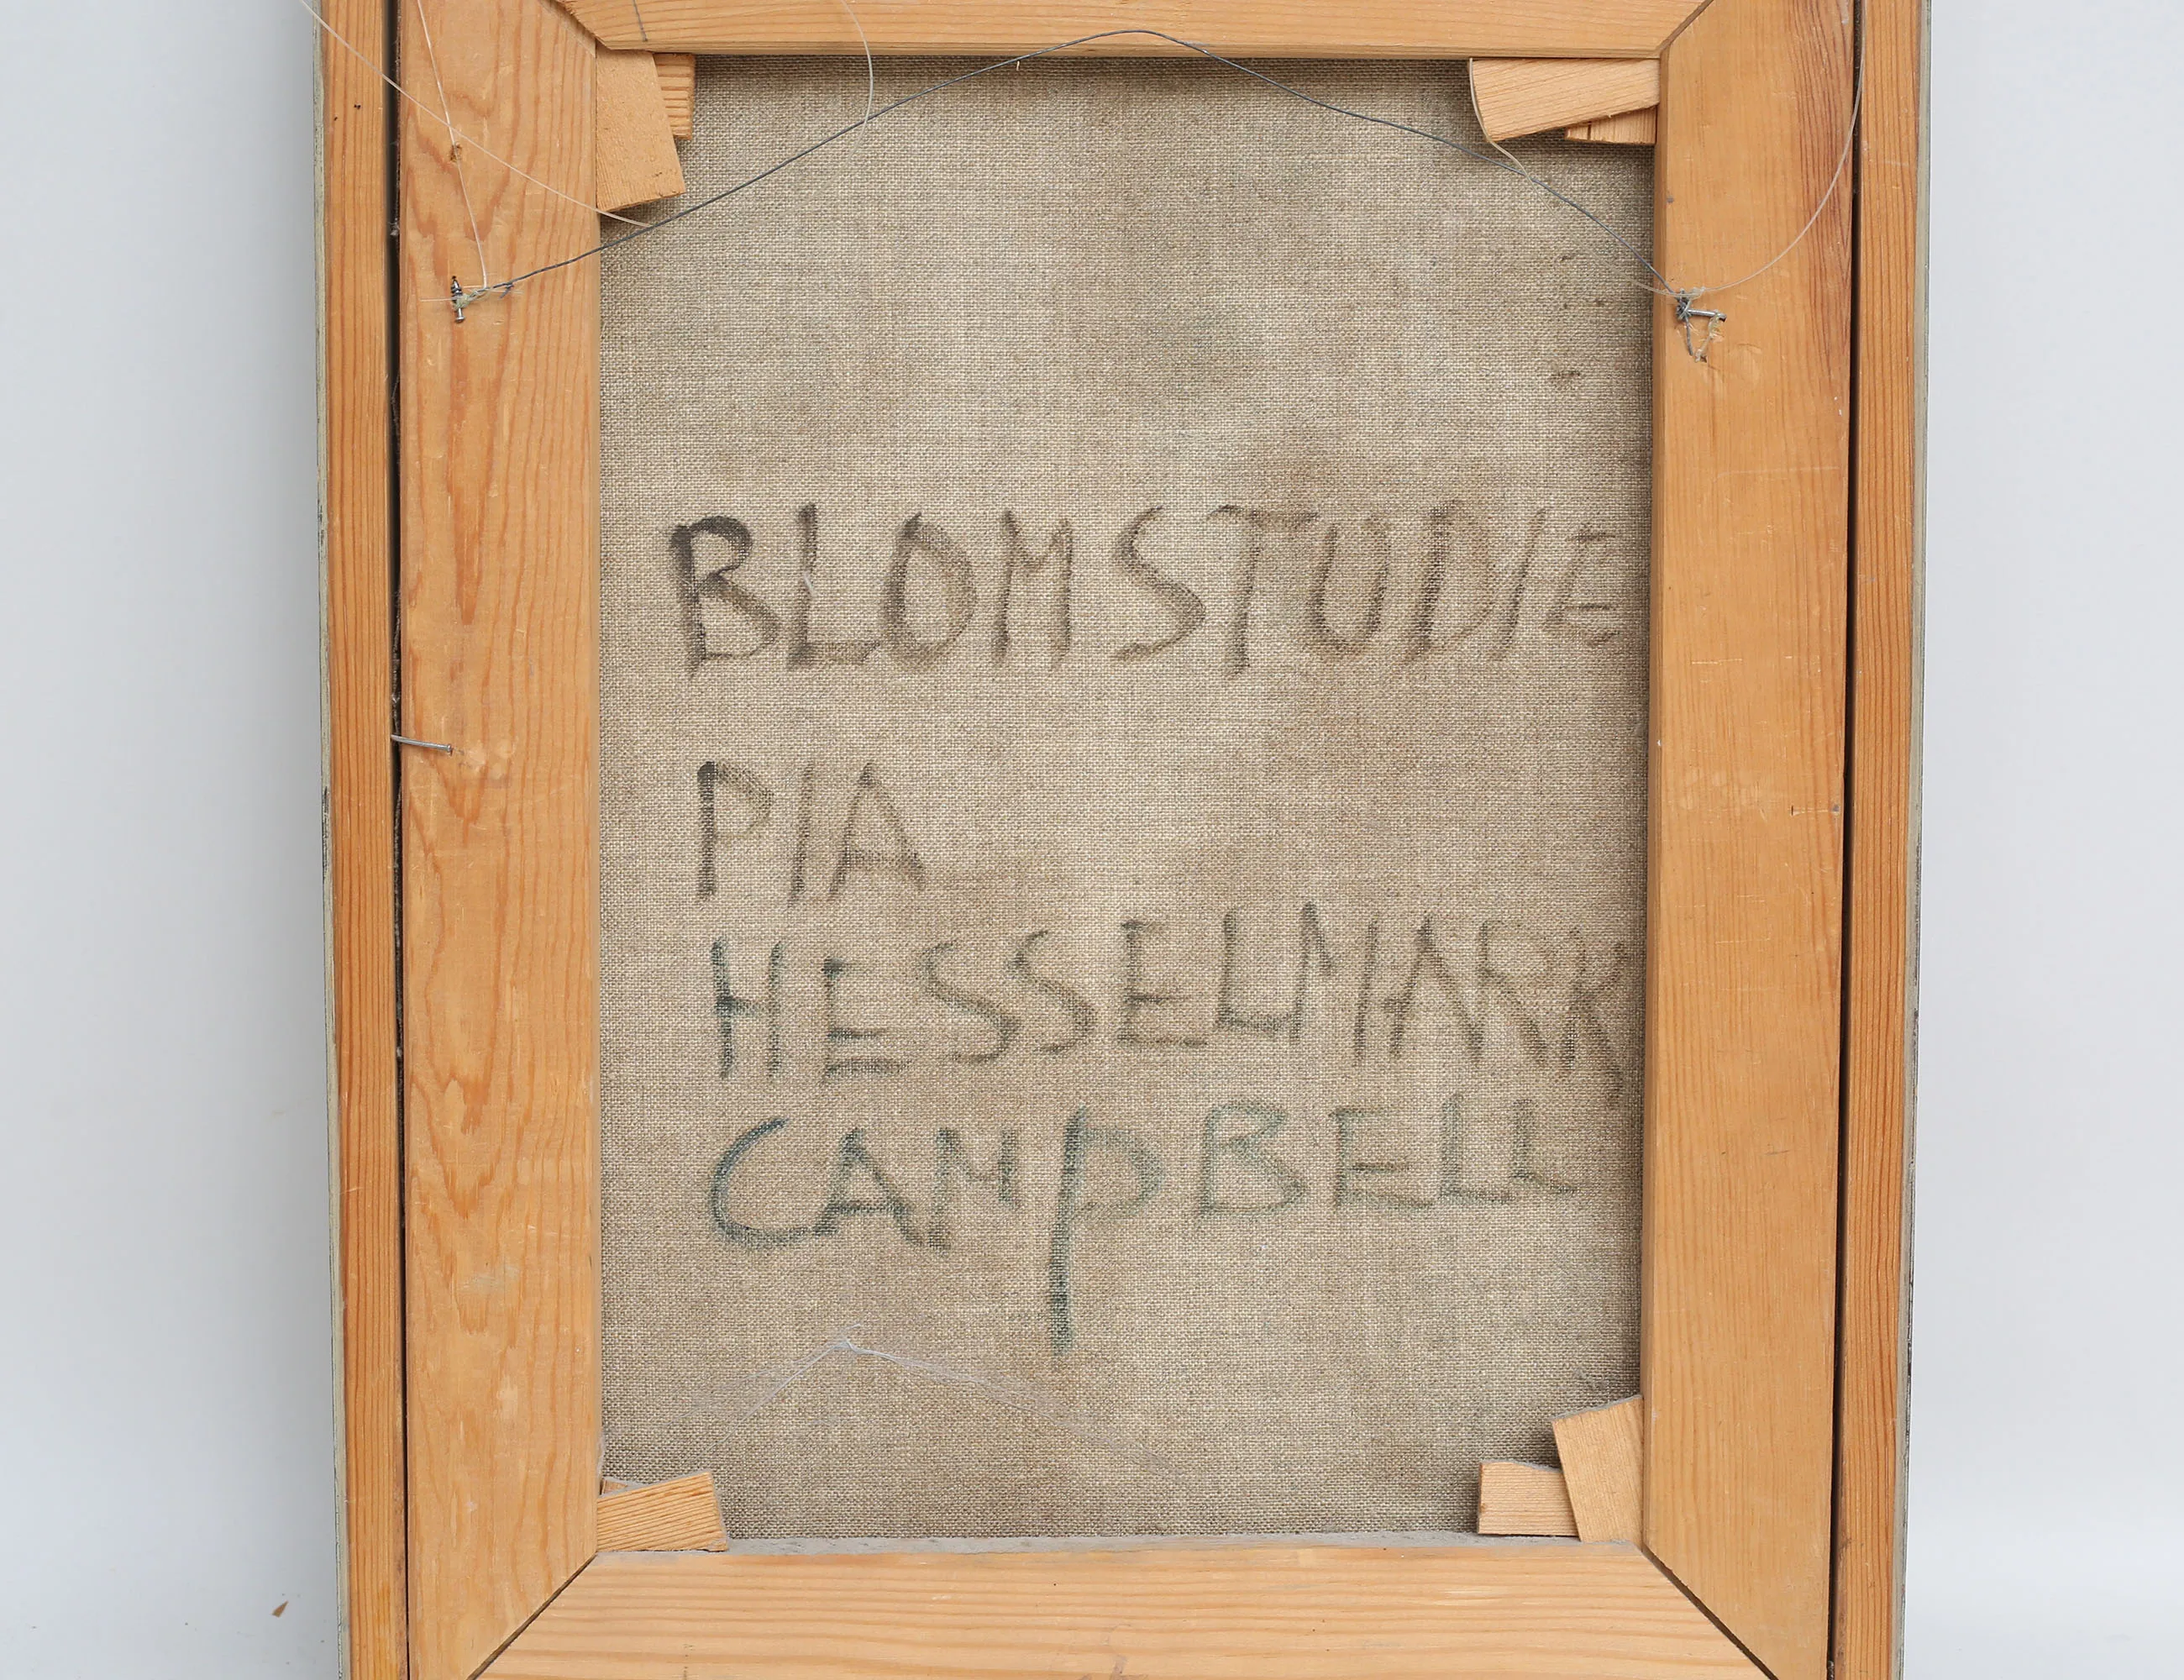 BLOMSTUDIE
PIA
HESSELMARK
CAMpBELL